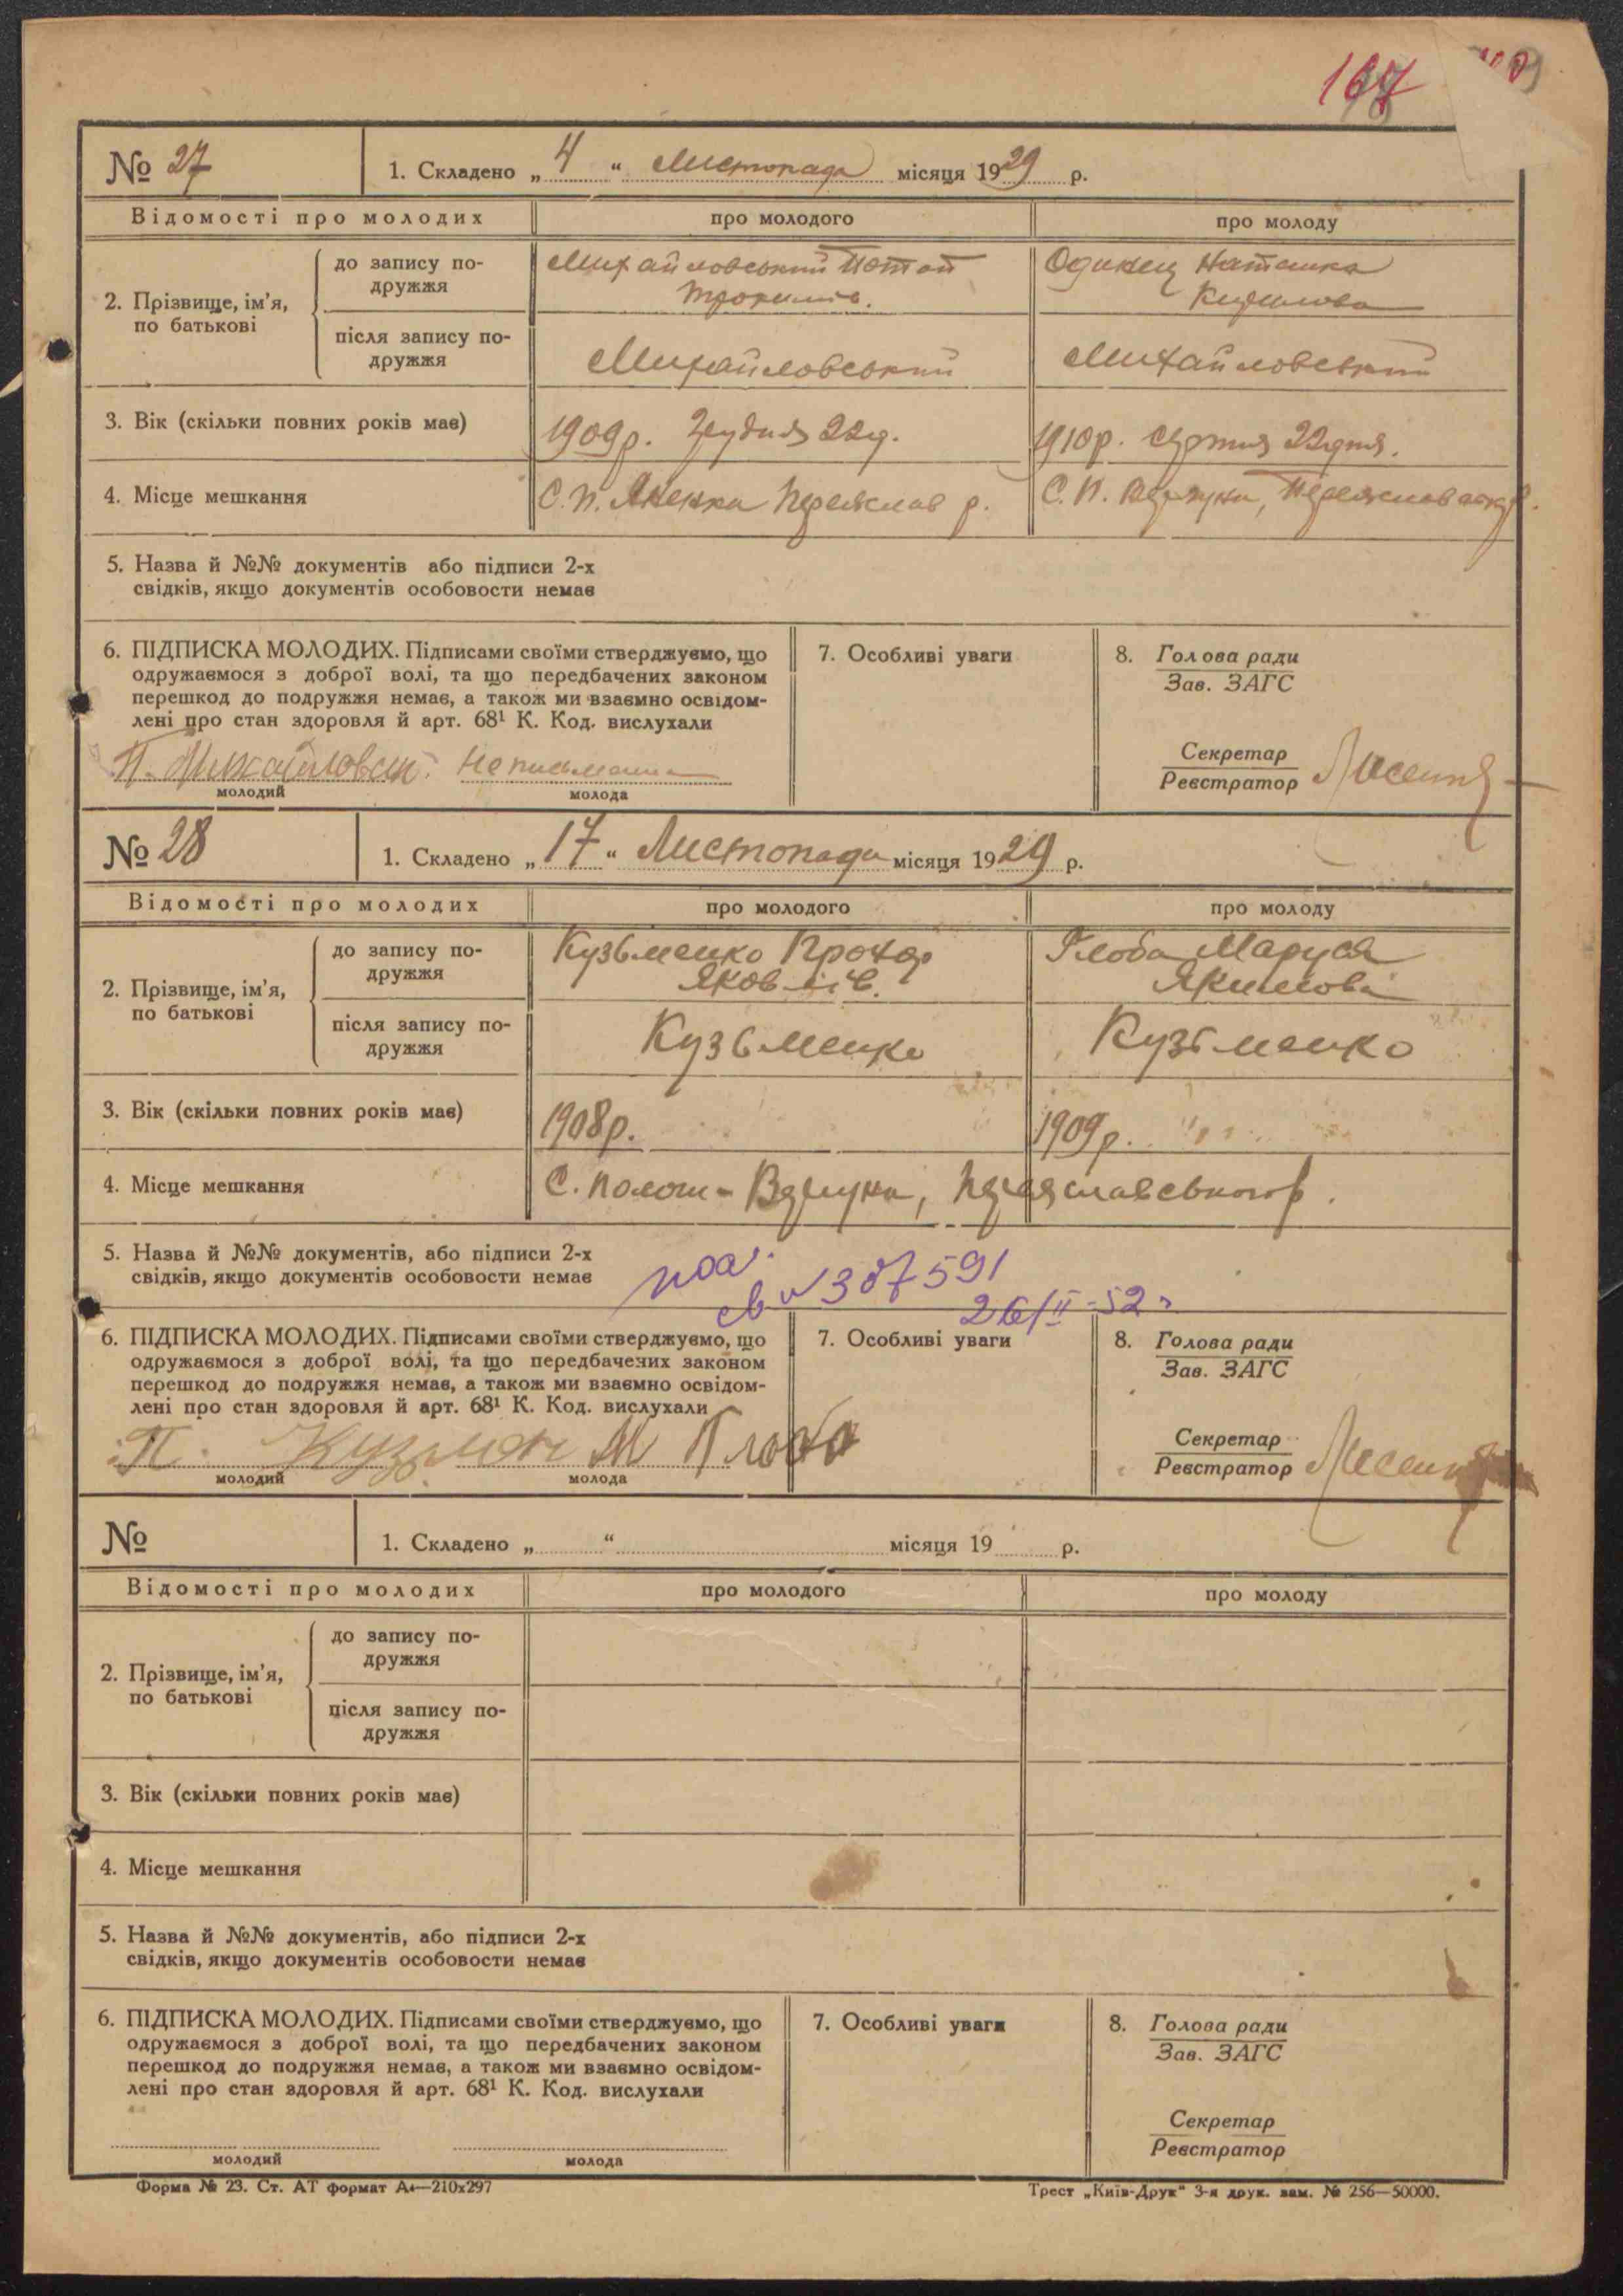 167
№ 27
1. Складено „ 4 “ Листопада місяця 1929 р.
Відомості про молодих
про молодого
про молоду
2. Прізвище, ім’я, по батькові
до запису подружжя
Михайловський Потап
Трохимів.
Одинец Наталка
Кирилова
після запису подружжя
Михайловський
Михайловський
3. Вік (скільки повних років має)
1909р. Грудня 22д.
1910р. Серпня 22дня.
4. Місце мешкання
С. П. Яненка Переяслав р.
С. П. Вергуни, Переяславськ р.
5. Назва й №№ документів або підписи 2-х
свідків, якщо документів особовости немає
6. ПІДПИСКА МОЛОДИХ. Підписами своїми стверджуємо, що
одружаємося з доброї волі, та що передбачених законом
перешкод до подружжя немає, а також ми взаємно освідом-
лені про стан здоровля й арт. 68¹ К. Код. вислухали
П. Михайловськ. Неписьменна
молодий
молода
7. Особливі уваги
8. Голова ради
Зав. ЗАГС
Секретар
Реєстратор
№ 28
1. Складено „ 17 “ Листопада місяця 1929 р.
Відомості про молодих
про молодого
про молоду
2. Прізвище, ім’я, по батькові
до запису подружжя
Кузьменко Прохор
Яковлів.
Глоба Маруся
Якимова
після запису подружжя
Кузьменко
Кузьменко
3. Вік (скільки повних років має)
1908р.
1909р.
4. Місце мешкання
С. Полож- Вергуни, Переяславського р.
5. Назва й №№ документів, або підписи 2-х
свідків, якщо документів особовости немає
св №387591
26/II-52
6. ПІДПИСКА МОЛОДИХ. Підписами своїми стверджуємо, що
одружаємося з доброї волі, та що передбачених законом
перешкод до подружжя немає, а також ми взаємно освідом-
лені про стан здоровля й арт. 68¹ К. Код. вислухали
П. Кузмен М Глоба
молодий
молода
7. Особливі уваги
8. Голова ради
Зав. ЗАГС
Секретар
Реєстратор
№
1. Складено „ “ місяця 19 р.
Відомості про молодих
про молодого
про молоду
2. Прізвище, ім’я, по батькові
до запису подружжя
після запису подружжя
3. Вік (скільки повних років має)
4. Місце мешкання
5. Назва й №№ документів, або підписи 2-х
свідків, якщо документів особовости немає
6. ПІДПИСКА МОЛОДИХ. Підписами своїми стверджуємо, що
одружаємося з доброї волі, та що передбачених законом
перешкод до подружжя немає, а також ми взаємно освідом-
лені про стан здоровля й арт. 68¹ К. Код. вислухали
молодий
молода
7. Особливі уваги
8. Голова ради
Зав. ЗАГС
Секретар
Реєстратор
Форма № 23. Ст. АТ формат А4—210х297
Трест „Київ-Друк“ 3-я друк. зам. № 256—50000.